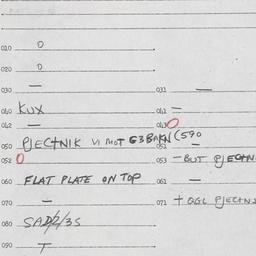 010 0
020 0
030 — 031 —
040 KUX 041 —
042 — 043 0
050 PJECTNIK VI MOT G3BAKN (590
051 —
052 0 053 — BUT PJECTN
060 FLAT PLATE ON TOP 061 —
070 — 071 + OGL PJECTNS
080 SAD/2/35
090 T